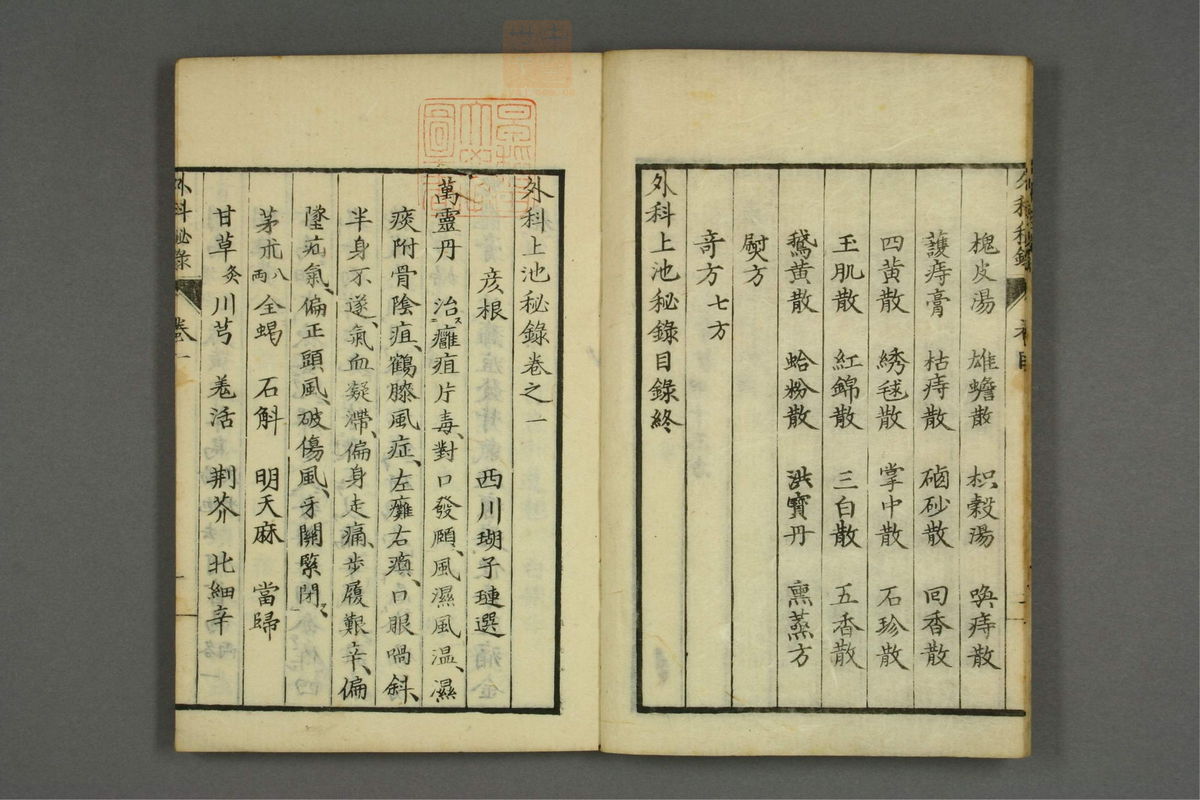 槐皮湯 雄蟾散 枳殼湯 喚痔散
護痔膏 枯痔散 硇砂散 回香散
四黄散 綉毬散 掌中散 石珍散
玉肌散 紅錦散 三白散 五香散
鵝黄散 蛤粉散 洪寳丹 熏蒸方
熨方
竒方 七方
外科上池秘錄目錄終
外科上池秘錄卷之一
彦根 西川瑚子璉選
萬靈丹 治癰疽片毒、對口發頤、風濕風温、濕
痰附骨陰疽、鶴膝風症、左癱右瘓、口眼喎斜、
半身不遂、氣血凝滯、偏身走痛、步履艱辛、偏
墜疝氣、偏正頭風、破傷風、牙關緊閉、
茅朮八両 全蝎 石斛 明天麻 當歸
甘草炙 川芎 羗活 荆芥 北細辛
外科秘錄 卷一